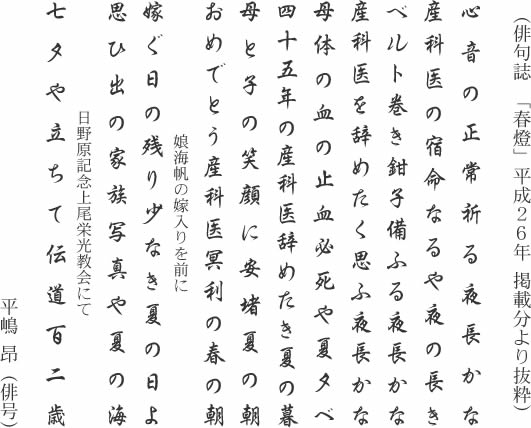 （俳句誌　「春燈」平成２６年　掲載分より抜粋）
心音の正常祈る夜長かな
産科医の宿命なるや夜の長き
ベルト巻き鉗子備ふる夜長かな
産科医を辞めたく思ふ夜長かな
母体の血の止血必死や夏夕べ
四十五年の産科医辞めたき夏の暮
母と子の笑顔に安堵夏の朝
おめでとう産科医冥利の春の朝
娘海帆の嫁入りを前に
嫁ぐ日の残り少なき夏の日よ
思ひ出の家族写真や夏の海
日野原記念上尾栄光教会にて
七夕や立ちて伝道百二歳
平嶋　昂（俳号）